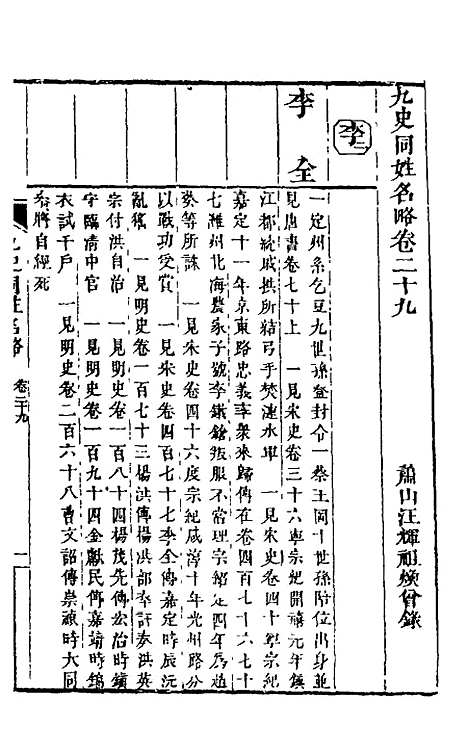 九史同姓名略卷二十九
蕭山汪輝祖煥曾錄
李二
李全
一定州系乞豆九世孫登封令一蔡王岡十世孫陪位出身並
見唐書卷七十上　一見宋史卷三十六寧宗紀開禧元年鎮
江都統戚拱所結弓手焚漣水軍　一見宋史卷四十寧宗紀
嘉定十一年京東路忠義李全率衆來歸傳在卷四百七十六七十
七濰州北海農家子號李鐵鎗叛服不常理宗紹定四年爲趙
葵等所誅　一見宋史卷四十六度宗紀咸淳十年光州路分
以戰功受賞　一見宋史卷四百七十七李全傳嘉定時辰沅
亂猺　一見明史卷一百七十三楊洪傳楊洪部李全許奏洪英
宗付洪自治　一見明史卷一百八十四楊茂先傳宏治時鎮
守臨淸中官　一見明史卷一百九十四金獻民傳嘉靖時錦
衣試千戶　一見明史卷二百六十八曹文詔傳崇禎時大同
參將自經死
九史同姓名略
卷二十九
一